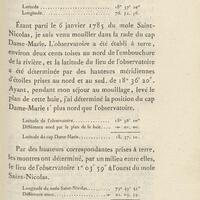 Latitude ........ 18° 37′ 20″
Longitude ........ 76. 51. 26.
Étant parti le 6 janvier 1785 du mole Saint-
Nicolas, je suis venu mouiller dans la rade du cap
Dame-Marie. L'observatoire a été établi à terre,
environ deux cents toises au nord de l'embouchure
de la rivière, et la latitude du lieu de l'observatoire
a été déterminée par des hauteurs méridiennes
d'étoiles prises au nord et au sud, de 18° 36′ 20″.
Ayant, pendant mon séjour au mouillage, levé le
plan de cette baie, j'ai déterminé la position du cap
Dame-Marie 1′ plus nord que l'observatoire.
Latitude de l'observatoire
Différence nord par le plan de la baie
Latitude du cap Dame-Marie 18. 37. 20.
Par des hauteurs correspondantes prises à terre,
les montres ont déterminé, par un milieu entre elles,
le lieu de l'observatoire 1° 03′ 59″ à l'ouest du mole
Saint-Nicolas.
Longitude du mole Saint-Nicolas
Différence ouest